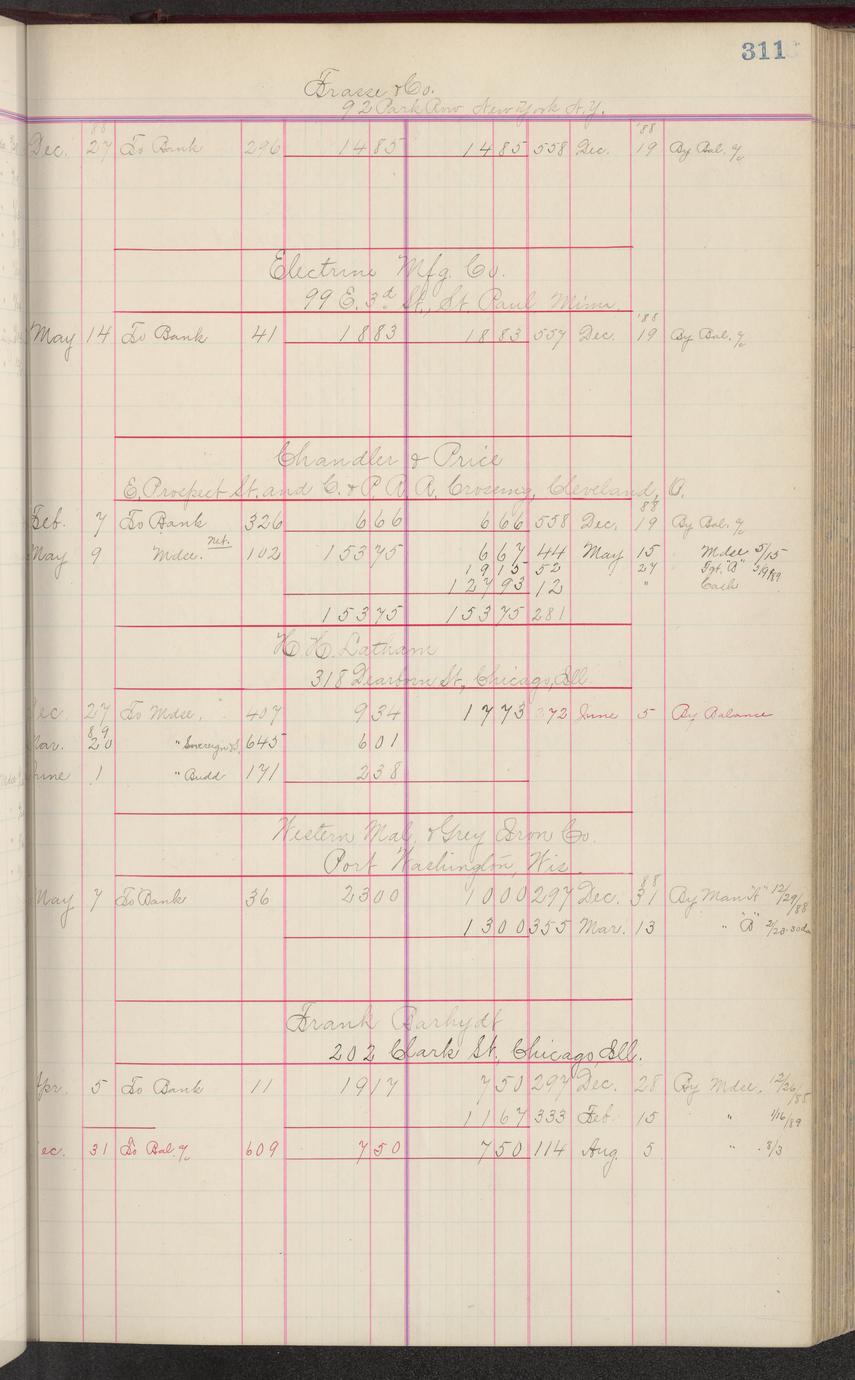 311
Frasse & Co.
92 Park Row New York N.Y.
88 '88
Dec. 27 To Bank 296 14 85 14 85 558 Dec. 19 By Bal. %
Electrine Mfg. Co.
99 E. 3d St., St. Paul Minn.
'88
May 14 To Bank 41 18 83 18 83 557 Dec. 19 By Bal. %
Chandler & Price
E. Prospect St. and C. & P. R. R. Crossing, Cleveland, O.
88
Feb. 7 To Bank 326 6 66 6 66 558 Dec. 19 By Bal. %
May 9 " Mdse. net. 102 153 75 6 67 44 May 15 Mdse 5/15
19 15 52 27 "B" 
127 93 12 " Cash
153 75 153 75 281
H. H. Latham
318 Dearborn St., Chicago, Ill.
Dec. 27 To Mdse. 407 9 34 17 73 372 June 5 By Balance
89
Mar. 20 " Sovereign 645 6 01
June 1 " Budd 171 2 38
Western Mal. & Grey Iron Co.
Port Washington, Wis.
88
May 7 To Bank 36 23 00 10 00 297 Dec. 31 By Man "A" 12/29/88
13 00 355 Mar. 13 " "B" 2/20-30d
Frank Barhydt
202 Clark St., Chicago, Ill.
Apr. 5 To Bank 11 19 17 7 50 297 Dec. 28 By Mdse. 12/26/88
11 67 333 Feb. 15 " 1/16/89
Dec. 31 To Bal. % 609 7 50 7 50 114 Aug. 5 " 8/3